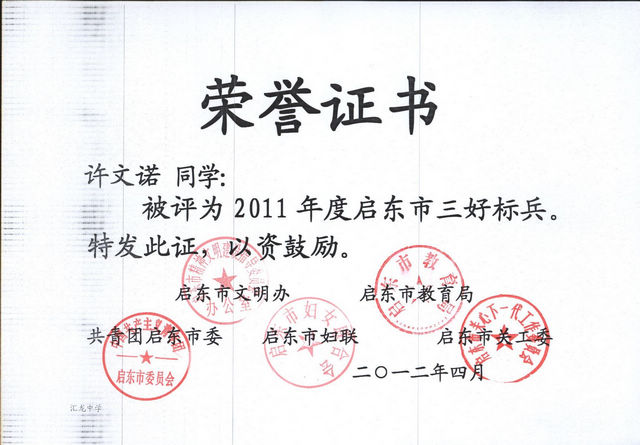 荣誉证书
许文诺 同学:
被评为2011年度启东市三好标兵。
特发此证,以资鼓励。
启东市文明办 启东市教育局
共青团启东市委 启东市妇联 启东市关工委
二〇一二年四月
汇龙中学
办公室
启东市教育局
启东市委员会
启东市妇女联合会